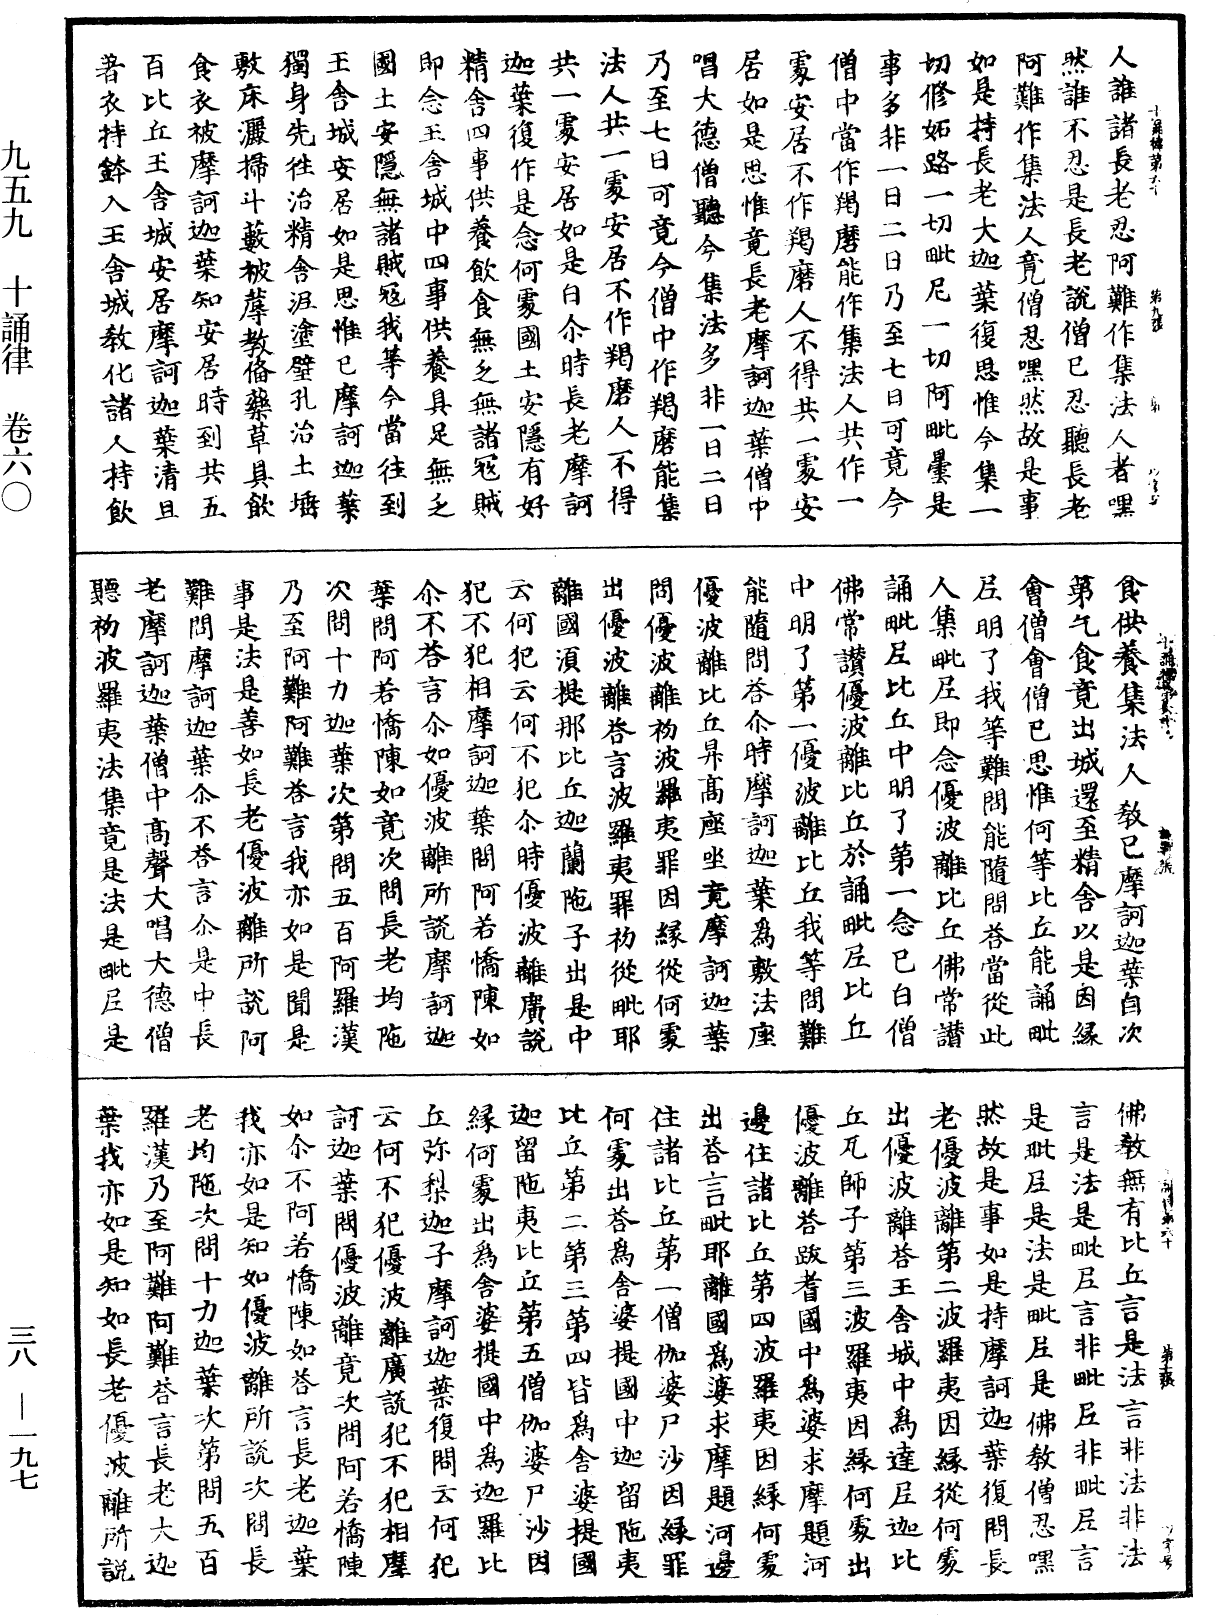 人誰諸長老忍阿難作集法人者嘿
然誰不忍是長老說僧已忍聽長老
阿難作集法人竟僧忍嘿然故是事
如是持長老大迦葉復思惟今集一
切修妬路一切毗尼一切阿毗曇是
事多非一日二日乃至七日可竟今
僧中當作羯磨能作集法人共作一
處安居不作羯磨人不得共一處安
居如是思惟竟長老摩訶迦葉僧中
唱大德僧聽今集法多非一日二日
乃至七日可竟今僧中作羯磨能集
法人共一處安居不作羯磨人不得
共一處安居如是白尒時長老摩訶
迦葉復作是念何處國土安隱有好
精舍四事供養飲食無乏無諸寇賊
即念王舍城中四事供養具足無乏
國土安隱無諸賊寇我等今當往到
王舍城安居如是思惟已摩訶迦葉
獨身先往治精舍泥塗壁孔治土埵
敷床灑掃斗藪被蓐教俻藥草具飲
食衣被摩訶迦葉知安居時到共五
百比丘王舍城安居摩訶迦葉清旦
著衣持鉢入王舍城教化諸人持飲
食供養集法人教已摩訶迦葉自次
第乞食竟出城還至精舍以是因緣
會僧會僧已思惟何等比丘能誦毗
尼明了我等難問能隨問荅當從此
人集毗尼即念優波離比丘佛常讚
誦毗尼比丘中明了第一念已白僧
佛常讚優波離比丘於誦毗尼比丘
中明了第一優波離比丘我等問難
能隨問荅尒時摩訶迦葉爲敷法座
優波離比丘昇高座坐竟摩訶迦葉
問優波離初波羅夷罪因緣從何處
出優波離荅言波羅夷罪初從毗耶
離國湏提那比丘迦蘭陁子出是中
云何犯云何不犯尒時優波離廣說
犯不犯相摩訶迦葉問阿若憍陳如
尒不荅言尒如優波離所說摩訶迦
葉問阿若憍陳如竟次問長老均陁
次問十力迦葉次第問五百阿羅漢
乃至阿難阿難荅言我亦如是聞是
事是法是善如長老優波離所說阿
難問摩訶迦葉尒不荅言尒是中長
老摩訶迦葉僧中高聲大唱大德僧
聽初波羅夷法集竟是法是毗尼是
佛教無有比丘言是法言非法非法
言是法是毗尼言非毗尼非毗尼言
是毗尼是法是毗尼是佛教僧忍嘿
然故是事如是持摩訶迦葉復問長
老優波離第二波羅夷因緣從何處
出優波離荅王舍城中爲達尼迦比
丘瓦師子第三波羅夷因緣何處出
優波離荅跋耆國中爲婆求摩題河
邊住諸比丘第四波羅夷因緣何處
出荅言毗耶離國爲婆求摩題河邊
住諸比丘第一僧伽婆尸沙因緣罪
何處出荅爲舍婆提國中迦留陁夷
比丘第二第三第四皆爲舍婆提國
迦留陁夷比丘第五僧伽婆尸沙因
緣何處出爲舍婆提國中爲迦羅比
丘弥梨迦子摩訶迦葉復問云何犯
云何不犯優波離廣說犯不犯相摩
訶迦葉問優波離竟次問阿若憍陳
如尒不阿若憍陳如荅言長老迦葉
我亦如是知如優波離所說次問長
老均陁次問十力迦葉次第問五百
羅漢乃至阿難阿難荅言長老大迦
葉我亦如是知如長老優波離所說
九五九 十誦律 卷六〇
三八 — 一九七